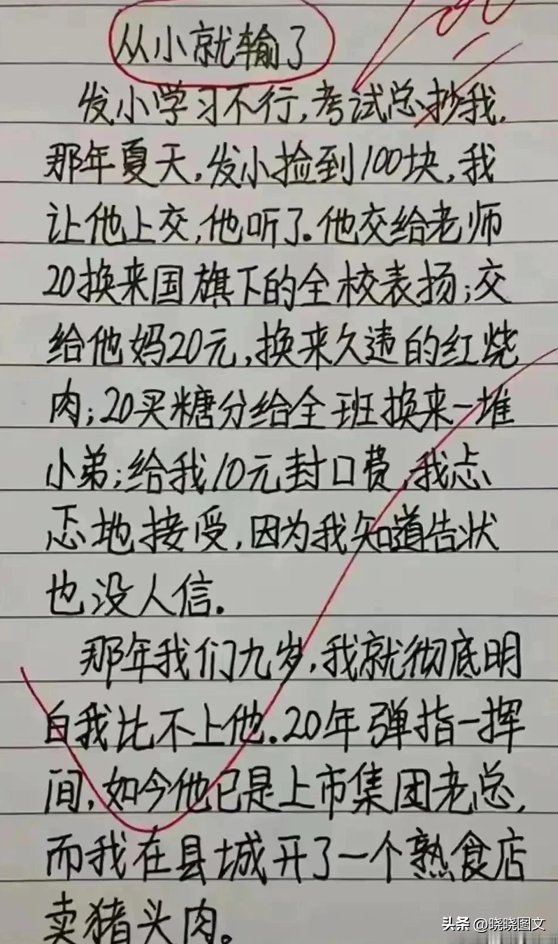 从小就输了
发小学习不行,考试总抄我.
那年夏天,发小捡到100块,我
让他上交,他听了.他交给老师
20换来国旗下的全校表扬;交
给他妈20元,换来久违的红烧
肉;20买糖分给全班换来一堆
小弟;给我10元封口费,我忐
忑地接受,因为我知道告状
也没人信.
那年我们九岁,我就彻底明
白我比不上他.20年弹指一挥
间,如今他已是上市集团老总,
而我在县城开了一个熟食店
卖猪头肉。
头条 @晓晓图文